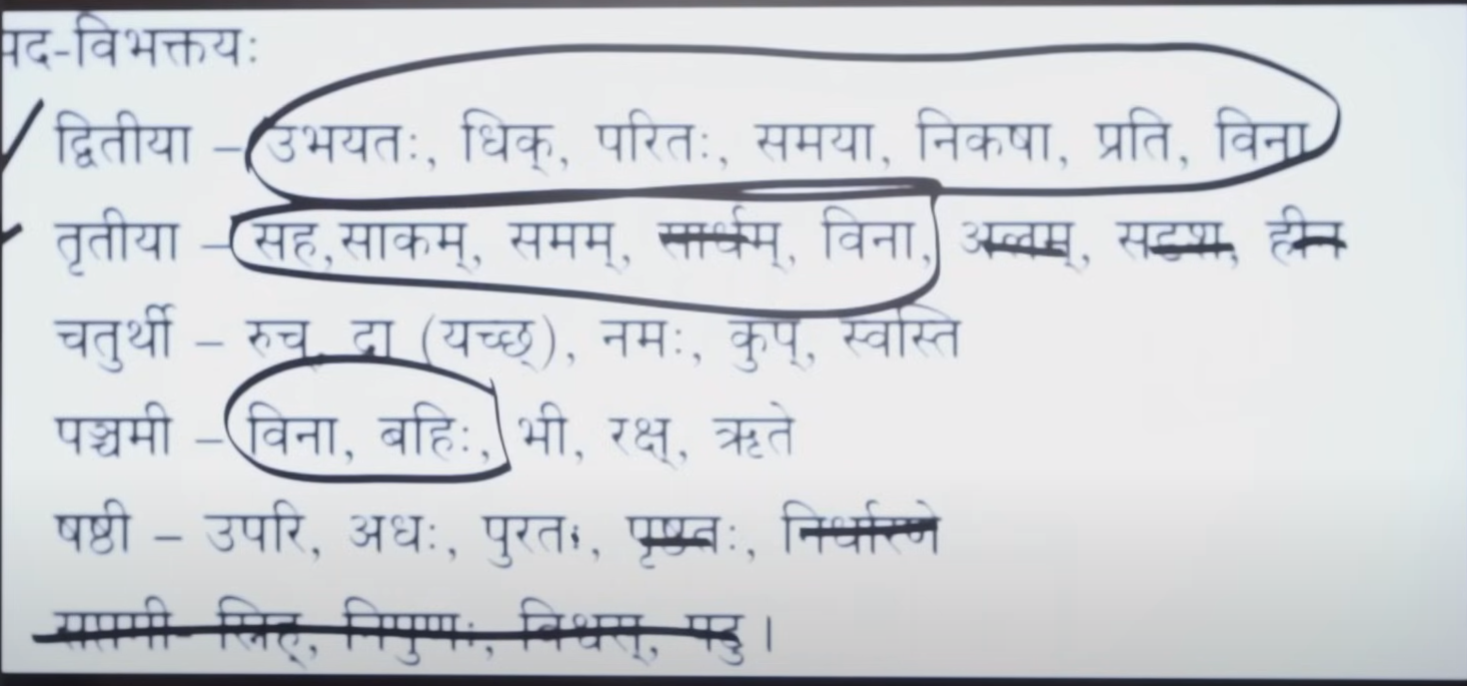 पद-विभक्तयः
द्वितीया – उभयतः, धिक्, परितः, समया, निकषा, प्रति, विना
तृतीया – सह,साकम्, समम्, सार्धम्, विना, अलम्, सदृश, हीन
चतुर्थी – रुच् दा (यच्छ्), नमः, कुप्, स्वस्ति
पञ्चमी – विना, बहिः, भी, रक्ष्, ऋते
षष्ठी – उपरि, अधः, पुरतः, पृष्ठतः, निर्धारणे
सप्तमी- स्निह्, निपुणः, विश्वस्, पटु ।